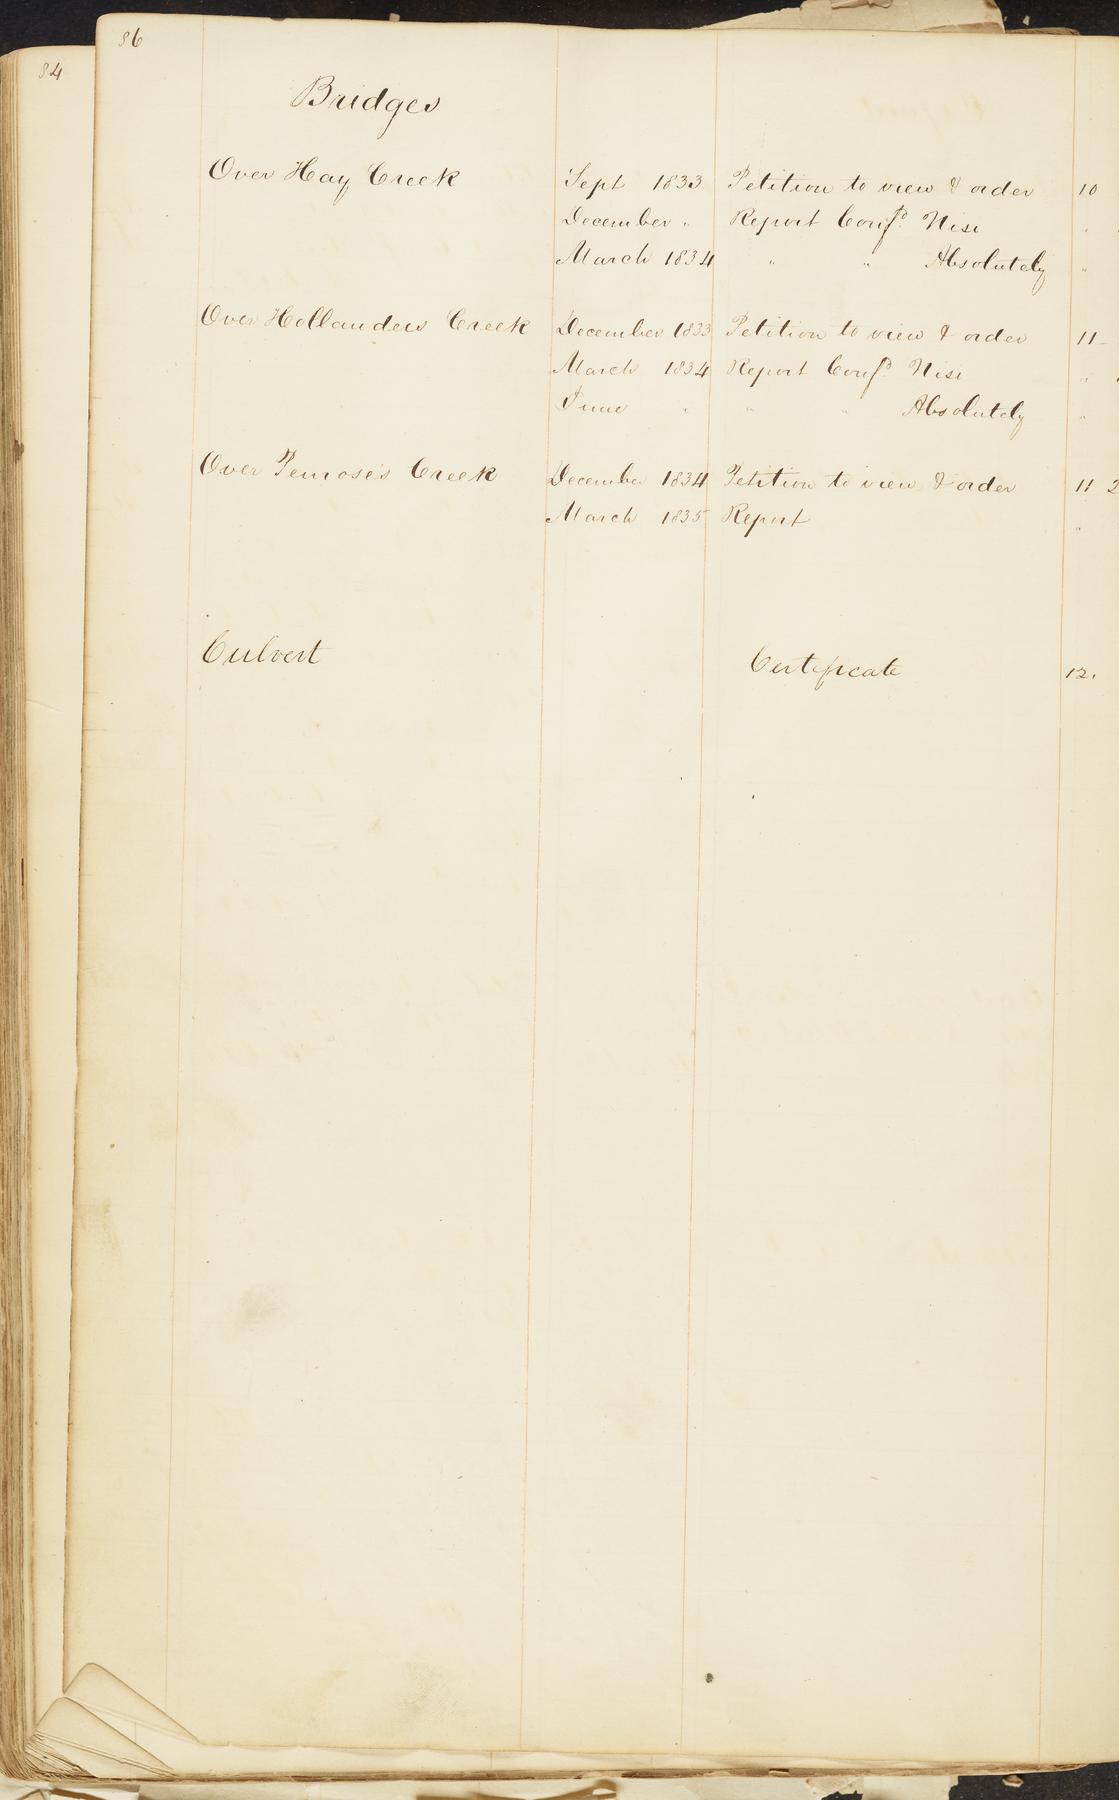 84
86
Bridges
Over Hay Creek Sept 1833 Petition to view & order 10
December " Report Confd. Nisi "
March 1834 " " Absolutely "
Over Hollanders Creek December 1833 Petition to view & order 11
March 1834 Report Confd. Nisi "
June " " " Absolutely "
Over Penrose's Creek December 1834 Petition to view & order 11 2
March 1835 Report "
Culvert Certificate 12.